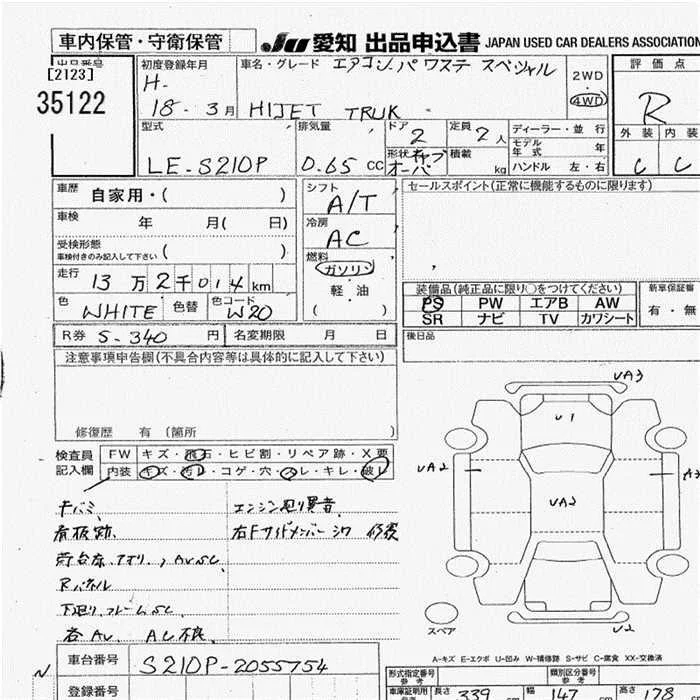 車内保管・守衛保管
JU 愛知 出品申込書 JAPAN USED CAR DEALERS ASSOCIATION
出品番号
[2123]
35122
初度登録年月
H-
18 - 3月
車名・グレード エアコン パワステ スペシャル
HIJET TRUK
2WD
・
4WD
評価点
R
外装 内装
C C
型式
LE-S210P
排気量
0.65 cc
ドア
2
形状
オープ
定員
2人
積載
kg
ディーラー・並行
モデル年式 年
ハンドル 左・右
車歴 自家用・( )
車検 年 月( 日)
受検形態
車検付きのみ記入して下さい ( )
走行 13万2千014km
色 WHITE 色替 色コード W20
シフト
A/T
冷房
AC
燃料
ガソリン
・
軽・油
( )
セールスポイント(正常に機能するものに限ります)
装備品(純正品に限り○をつけてください)
PS PW エアB AW
SR ナビ TV カワシート
新車保証書
有・無
後日品
R券 5-340円 名変期限 月 日
注意事項申告欄(不具合内容等は具体的に記入して下さい)
修復歴 有(箇所 )
検査員
記入欄
FW キズ・飛石・ヒビ割・リペア跡・X要
内装 キズ・汚レ・コゲ・穴・ハレ・キレ・破レ
チバミ
看板跡
荷台 アオリ、AU.SC
Rパネル
下廻り、フレームSC
各AU、AC不良
エンジン廻り異音
右FサイドメンバーシワUA3
U1
UA2
UA2
A3
U2
スペア
A-キズ E-エクボ U-凹み W-補修跡 S-サビ C-腐食 XX-交換済
車台番号 S210P-2055754
登録番号
形式指定番号
参考
類別区分番号
参考
車庫証明用
参考
長さ 339 cm 幅 147 cm 高さ 178